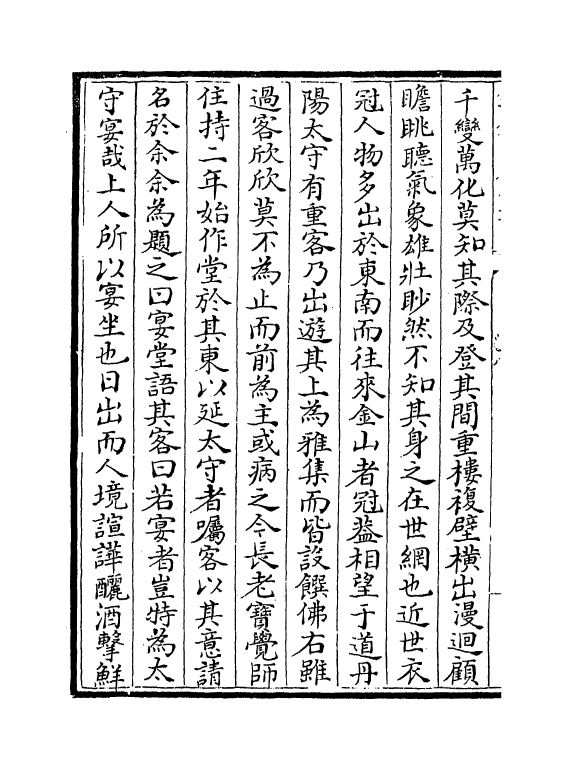 千變萬化莫知其際及登其間重樓複壁橫出漫迴顧
瞻眺聽氣象雄壯眇然不知其身之在世網也近世衣
冠人物多出於東南而往來金山者冠葢相望于道丹
陽太守有重客乃出遊其上為雅集而皆設饌佛右雖
過客欣欣莫不為止而前為主或病之今長老寶覺師
住持二年始作堂於其東以延太守者囑客以其意請
名於余余為題之曰宴堂語其客曰若宴者豈特為太
守宴哉上人所以宴坐也日出而人境諠譁釃酒擊鮮